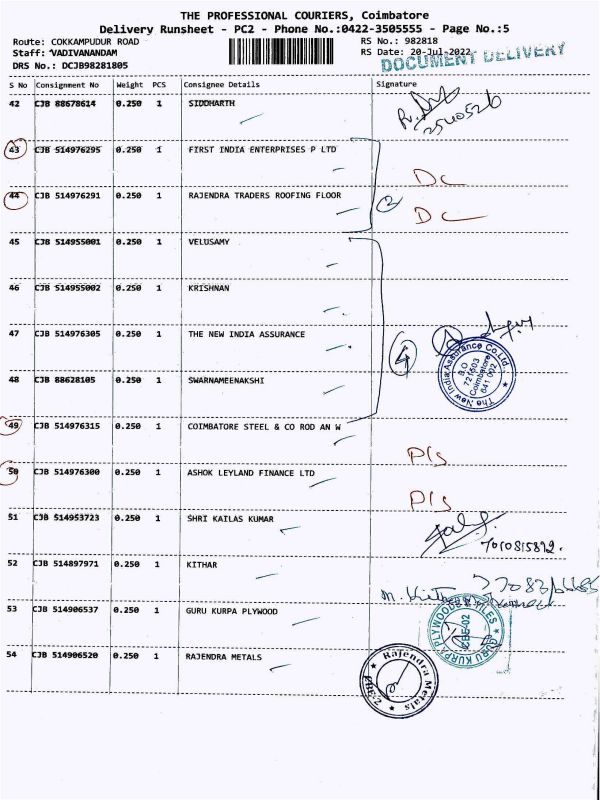 THE PROFESSIONAL COURIERS, Coimbatore
Delivery Runsheet - PC2 - Phone No.:0422-3505555 - Page No.:5
Route: COKKAMPUDUR ROAD RS No.: 982818
Staff: VADIVANANDAM RS Date: 20-Jul-2022
DOCUMENT DELIVERY
DRS No.: DCJB98281805
S No Consignment No Weight PCS Consignee Details Signature
42 CJB 88678614 0.250 1 SIDDHARTH
43 CJB 514976295 0.250 1 FIRST INDIA ENTERPRISES P LTD
DC
44 CJB 514976291 0.250 1 RAJENDRA TRADERS ROOFING FLOOR
2 DC
45 CJB 514955001 0.250 1 VELUSAMY
46 CJB 514955002 0.250 1 KRISHNAN
47 CJB 514976305 0.250 1 THE NEW INDIA ASSURANCE
4
The New India Assurance Co. Ltd.
B.O
721503
Coimbatore
641 002
48 CJB 88628105 0.250 1 SWARNAMEENAKSHI
49 CJB 514976315 0.250 1 COIMBATORE STEEL & CO ROD AN W
P/s
50 CJB 514976300 0.250 1 ASHOK LEYLAND FINANCE LTD
P/s
51 CJB 514953723 0.250 1 SHRI KAILAS KUMAR
7010815892.
52 CJB 514897971 0.250 1 KITHAR
53 CJB 514906537 0.250 1 GURU KURPA PLYWOOD
GURU KURPA PLYWOODS & TILES
CBE-02
54 CJB 514906520 0.250 1 RAJENDRA METALS
Rajendra Metals
CBE-2